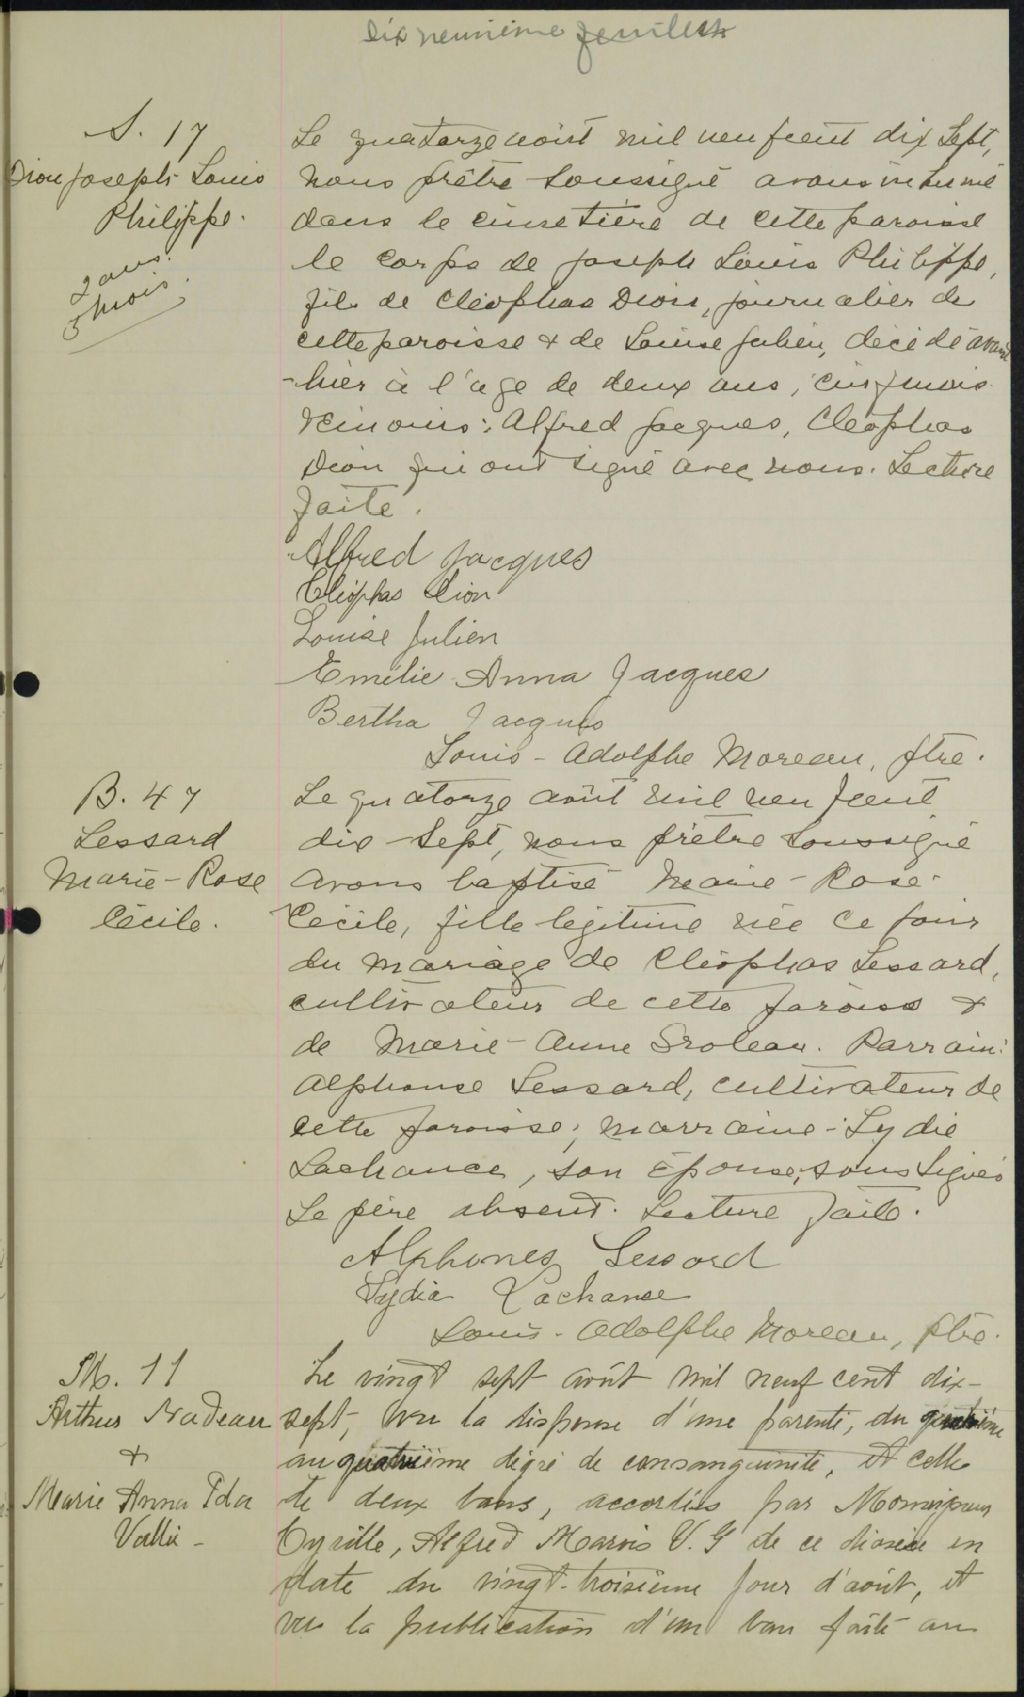 Dix neuvième feuillet
S. 17
Dion Joseph Louis
Philippe.
2 ans.
5 mois.
Le quatorze août mil neuf cent dix sept,
nous prêtre soussigné avons inhumé
dans le cimetière de cette paroisse
le corps de Joseph Louis Philippe,
fils de Cléophas Dion, journalier de
cette paroisse & de Louise Julien, décédé avant
-hier à l'age de deux ans, cinq mois
Témoins: Alfred Jacques, Cléophas
Dion qui ont signé avec nous. Lecture
faite.
Alfred Jacques
Cléophas Dion
Louise Julien
Emélie Anna Jacques
Bertha Jacques
Louis-Adolphe Moreau, ptre.
B. 47
Lessard
Marie-Rose
Cécile.
Le quatorze août mil neuf cent
dix-sept, nous prêtre soussigné
avons baptisé Marie-Rose-
Cécile, fille légitime née ce jour
du mariage de Cléophas Lessard,
cultivateur de cette paroisse &
de Marie-Anne Groleau. Parrain:
Alphonse Lessard, cultivateur de
cette paroisse; marraine-Lydie
Lachance, son épouse, soussignés
Le père absent. Lecture faite.
Alphones Lessard
Lydia Lachance
Louis-Adolphe Moreau, ptre.
M. 11
Arthur Nadeau
&
Marie Anna Ida
Vallée -
Le vingt sept août mil neuf cent dix-
sept, vu la dispense d'une parenté, du quatrième
au quatrième degré de consanguinité, et celle
de deux bans, accordées par Monseigneur
Cyrille, Alfred Marois V. G de ce diocèse en
date du vingt-troisième jour d'août, et
vu la publication d'un ban faite au